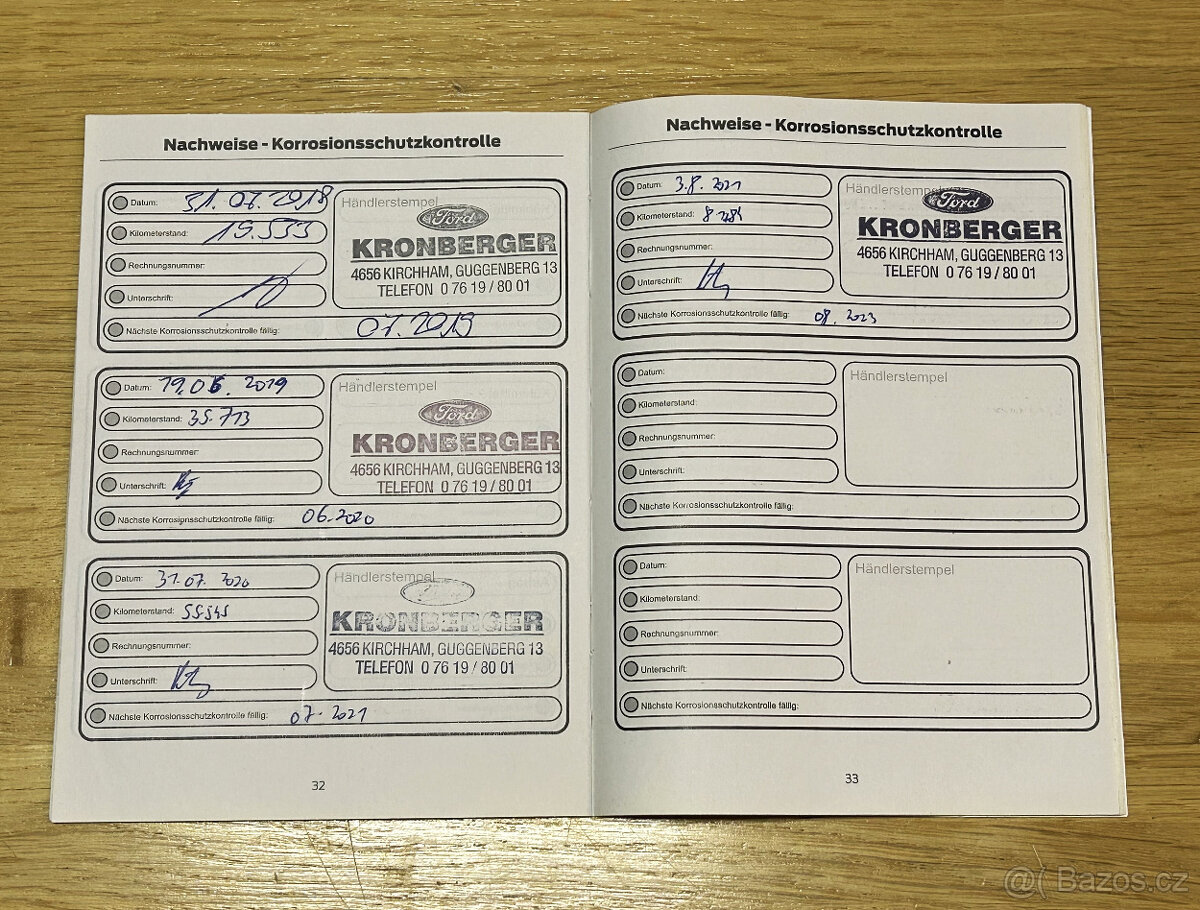 Nachweise - Korrosionsschutzkontrolle
Datum: 31.07.2018
Kilometerstand: 19.533
Rechnungsnummer:
Unterschrift:
Händlerstempel
Ford
KRONBERGER
4656 KIRCHHAM, GUGGENBERG 13
TELEFON 0 76 19 / 80 01
Nächste Korrosionsschutzkontrolle fällig: 07.2019
Datum: 19.06.2019
Kilometerstand: 35.713
Rechnungsnummer:
Unterschrift:
Händlerstempel
Ford
KRONBERGER
4656 KIRCHHAM, GUGGENBERG 13
TELEFON 0 76 19 / 80 01
Nächste Korrosionsschutzkontrolle fällig: 06.2020
Datum: 31.07.2020
Kilometerstand: 55545
Rechnungsnummer:
Unterschrift:
Händlerstempel
KRONBERGER
4656 KIRCHHAM, GUGGENBERG 13
TELEFON 0 76 19 / 80 01
Nächste Korrosionsschutzkontrolle fällig: 07.2021
32
Nachweise - Korrosionsschutzkontrolle
Datum: 3.8.2021
Kilometerstand:
Rechnungsnummer:
Unterschrift:
Händlerstempel
Ford
KRONBERGER
4656 KIRCHHAM, GUGGENBERG 13
TELEFON 0 76 19 / 80 01
Nächste Korrosionsschutzkontrolle fällig: 08.2023
Datum:
Kilometerstand:
Rechnungsnummer:
Unterschrift:
Händlerstempel
Nächste Korrosionsschutzkontrolle fällig:
Datum:
Kilometerstand:
Rechnungsnummer:
Unterschrift:
Händlerstempel
Nächste Korrosionsschutzkontrolle fällig:
33
@( Bazos.cz